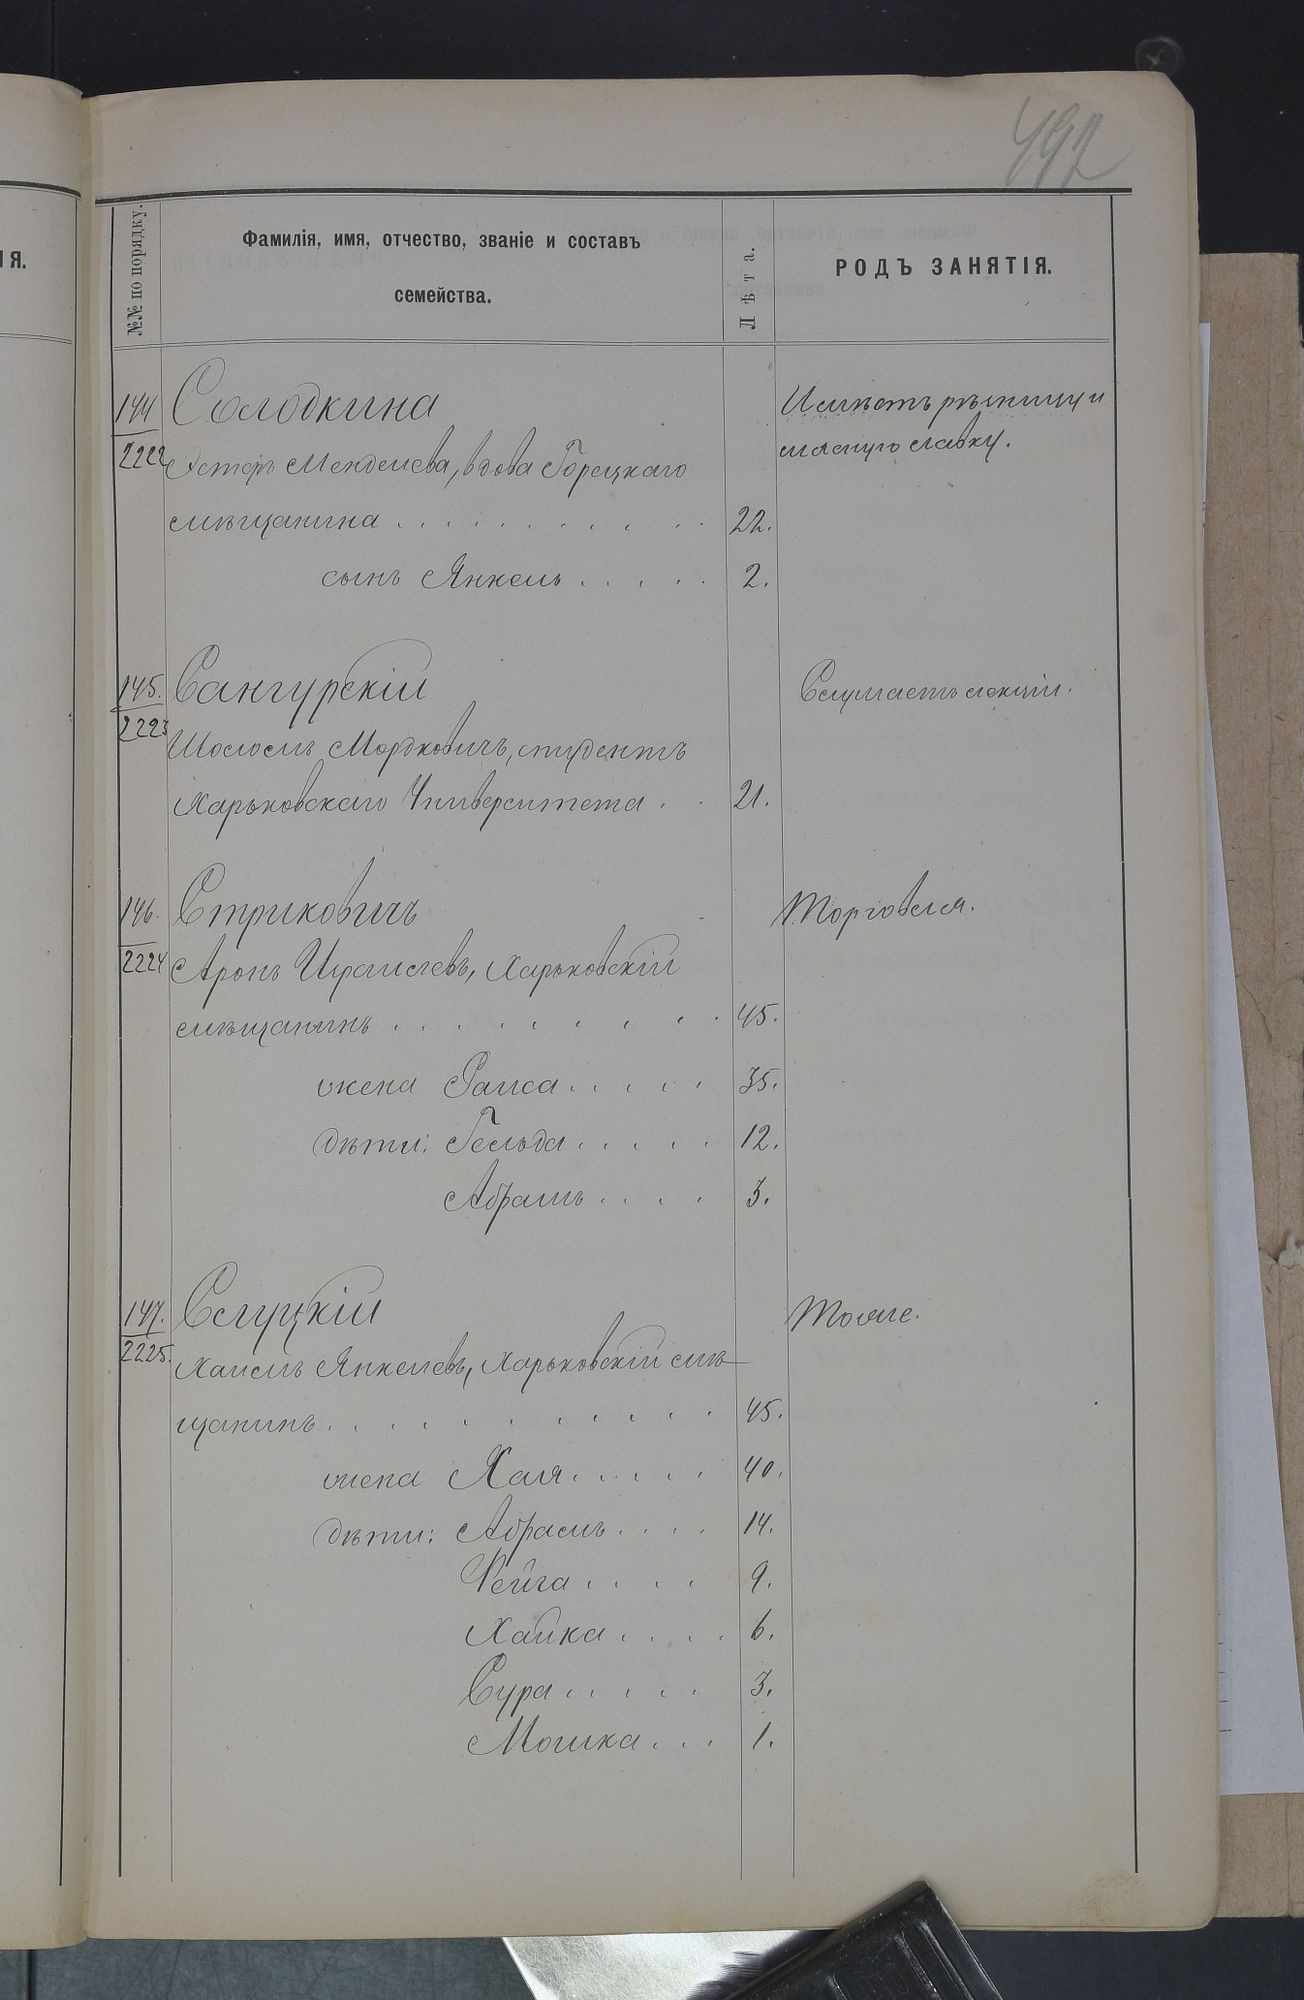 492
ІЯ.
№№ по порядку.
Фамилія, имя, отчество, званіе и составъ
семейства.
Лѣта.
РОДЪ ЗАНЯТІЯ.
144
2222
Солодкина
Эстеръ Менделева, вдова Горецкаго
мѣщанина . . . . . . . . . . . 22.
сынъ Янкель . . . . . 2.
Имѣетъ рѣзницу и
мясную лавку.
145.
2223
Сангурскій
Шоломъ Мордковичъ, студентъ
Харьковскаго Университета . . 21.
Слушаетъ лекціи.
146.
2224
Стриковичъ
Аронъ Израилевъ, Харьковскій
мѣщанинъ . . . . . . . . . . 45.
жена Раиса . . . . . 35.
дѣти: Гельда . . . . . 12.
Абрамъ . . . . 3.
Торговля.
147.
2225.
Слуцкій
Хаимъ Янкелевъ, Харьковскій мѣ-
щанинъ . . . . . . . . . . . 45.
жена Хая . . . . . 40.
дѣти: Абрамъ . . . . 14.
Фейга . . . . 9.
Хайка . . . . 6.
Сура . . . . . 3.
Мошка . . . 1.
Тоже.